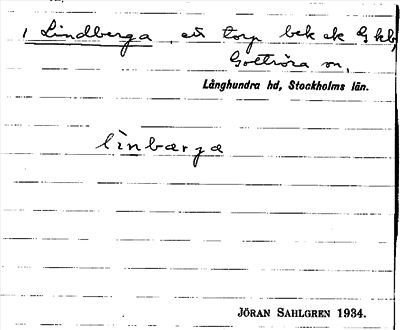 1 Lindberga ett torp bek ek G kb,
Gottröra sn,
Långhundra hd, Stockholms län.
lìnbærja
JÖRAN SAHLGREN 1934.